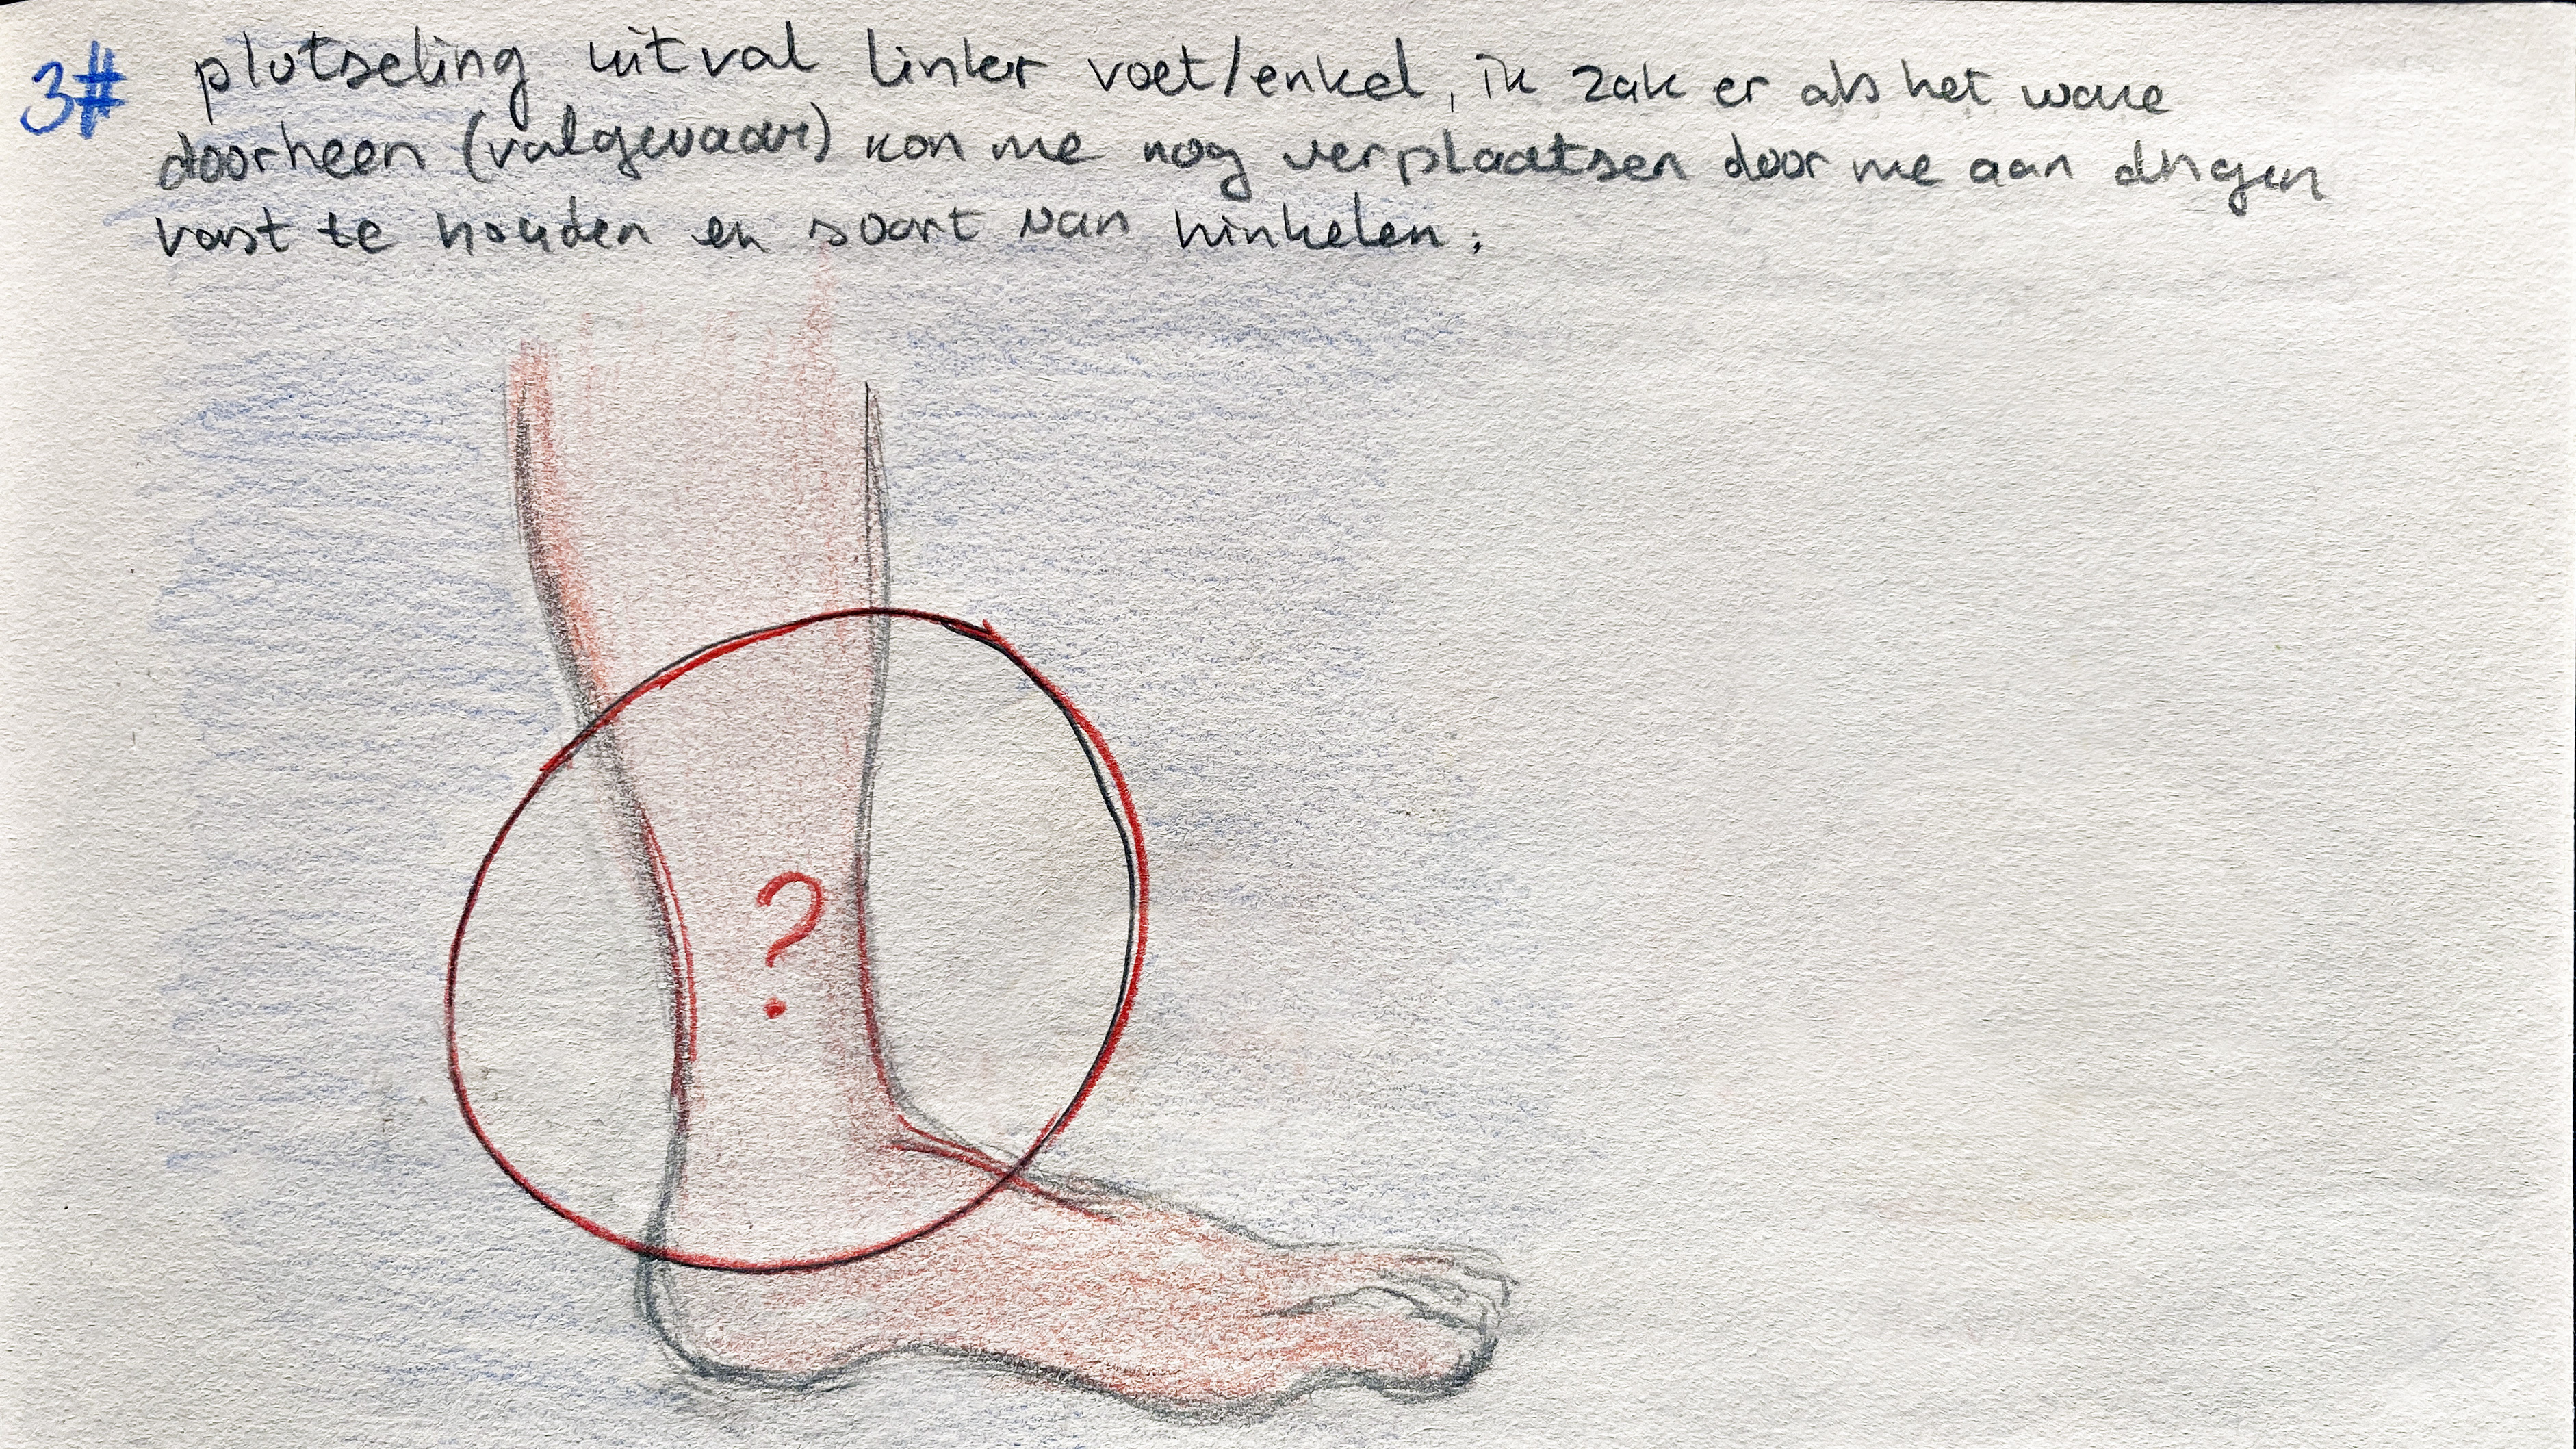 3# plotseling uitval linker voet/enkel, ik zak er als het ware
doorheen (valgevaar) kon me nog verplaatsen door me aan dingen
vast te houden en soort van hinkelen:
?